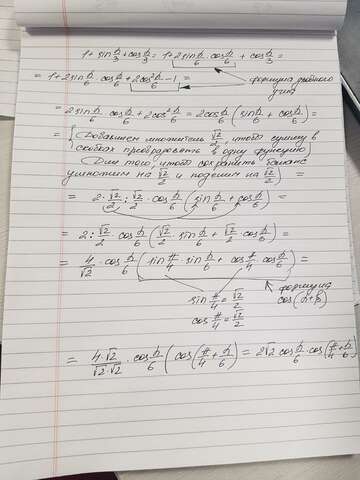 1+sin h/3 + cos h/3 = 1+2sin h/6 · cos h/6 + cos h/3 =
= 1+2sin h/6 · cos h/6 + 2cos² h/6 - 1 = формула двойного угла
= 2sin h/6 · cos h/6 + 2cos² h/6 = 2cos h/6 (sin h/6 + cos h/6) =
= (Добавляем множитель √2/2, чтобы сумму в
скобках преобразовать в одну функцию)
Для того, чтобы сохранить баланс
умножим на √2/2 и поделим на √2/2) =
= 2 · √2/2 : √2/2 · cos h/6 (sin h/6 + cos h/6) =
= 2 : √2/2 · cos h/6 (√2/2 · sin h/6 + √2/2 · cos h/6) =
= 4/√2 · cos h/6 (sin π/4 · sin h/6 + cos π/4 · cos h/6) =
sin π/4 = √2/2
cos π/4 = √2/2
формула
cos(α+β)
= 4·√2/√2·√2 · cos h/6 (cos(π/4 + h/6) = 2√2 cos h/6 · cos(π/4 + h/6)